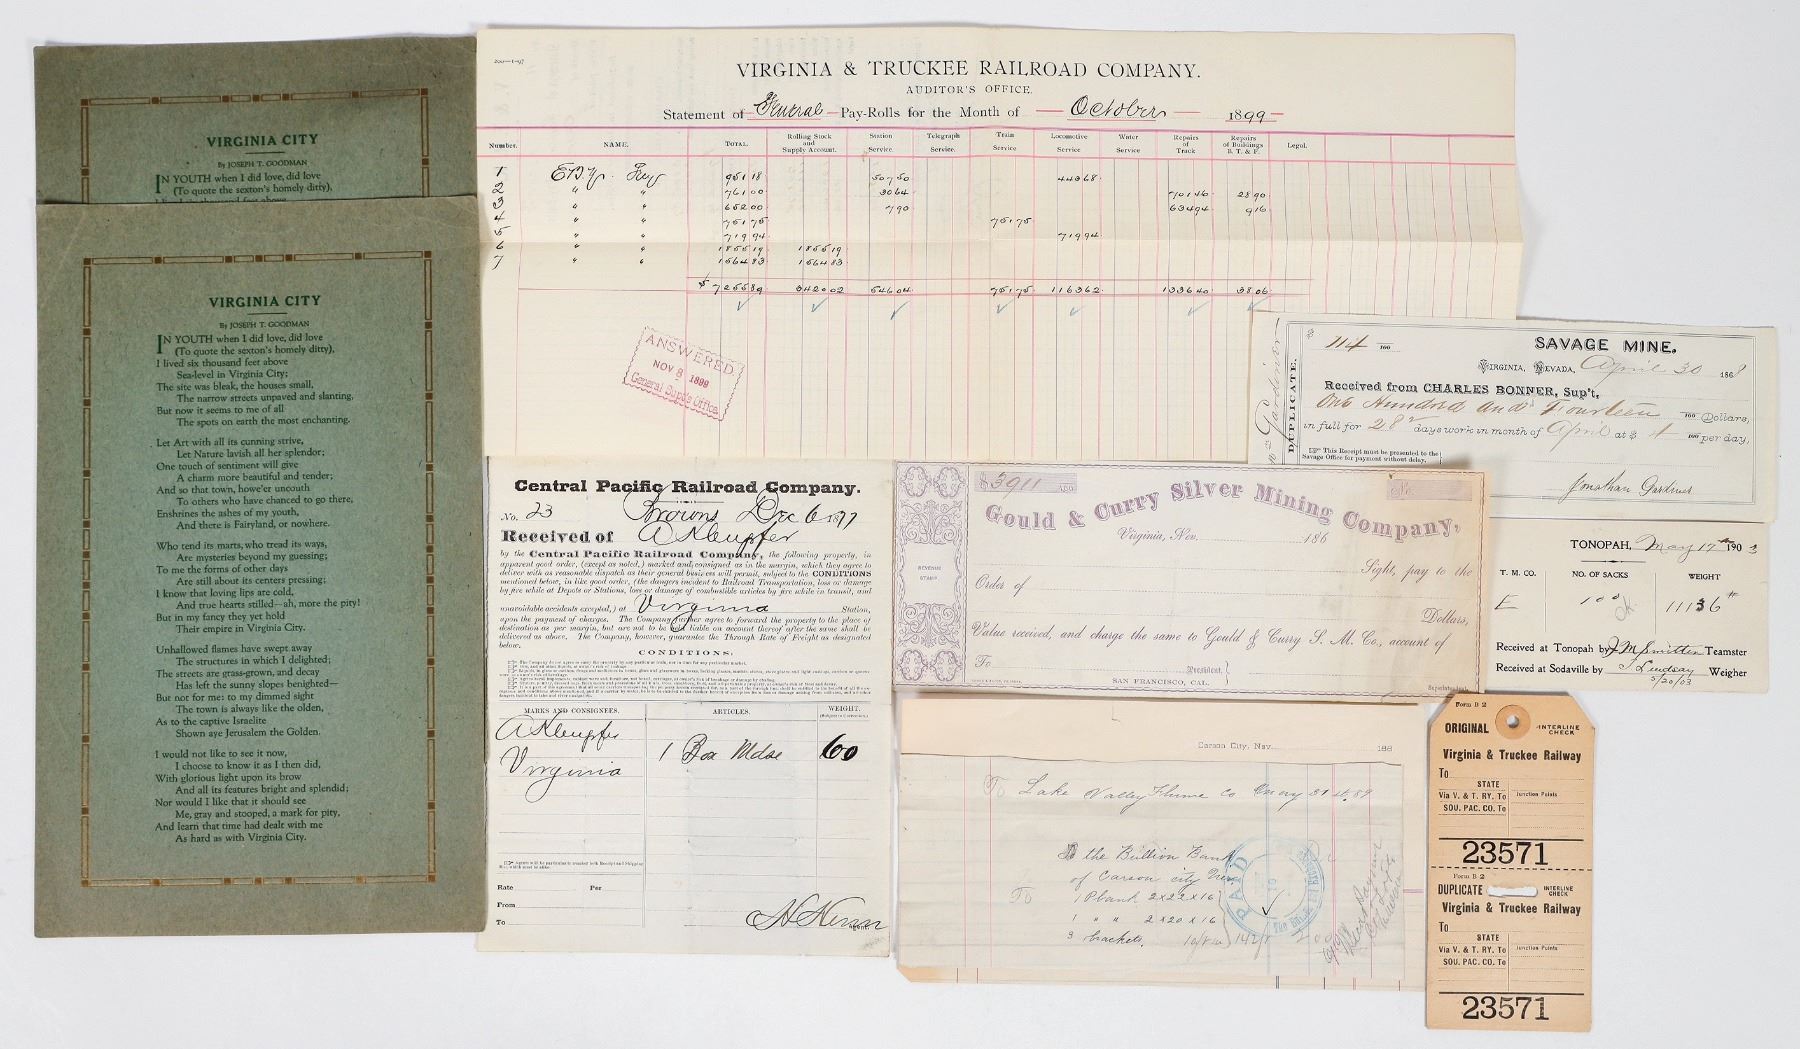 VIRGINIA CITY
By JOSEPH T. GOODMAN
IN YOUTH when I did love, did love
(To quote the sexton's homely ditty),
VIRGINIA CITY
By JOSEPH T. GOODMAN
IN YOUTH when I did love, did love
(To quote the sexton's homely ditty),
I lived six thousand feet above
Sea-level in Virginia City;
The site was bleak, the houses small,
The narrow streets unpaved and slanting,
But now it seems to me of all
The spots on earth the most enchanting.
Let Art with all its cunning strive,
Let Nature lavish all her splendor;
One touch of sentiment will give
A charm more beautiful and tender;
And so that town, howe'er uncouth
To others who have chanced to go there,
Enshrines the ashes of my youth,
And there is Fairyland, or nowhere.
Who tend its marts, who tread its ways,
Are mysteries beyond my guessing;
To me the forms of other days
Are still about its centers pressing;
I know that loving lips are cold,
And true hearts stilled—ah, more the pity!
But in my fancy they yet hold
Their empire in Virginia City.
Unhallowed flames have swept away
The structures in which I delighted;
The streets are grass-grown, and decay
Has left the sunny slopes benighted—
But not for me: to my dimmed sight
The town is always like the olden,
As to the captive Israelite
Shown aye Jerusalem the Golden.
I would not like to see it now,
I choose to know it as I then did,
With glorious light upon its brow
And all its features bright and splendid;
Nor would I like that it should see
Me, gray and stooped, a mark for pity,
And learn that time had dealt with me
As hard as with Virginia City.
VIRGINIA & TRUCKEE RAILROAD COMPANY.
AUDITOR'S OFFICE.
Statement of General Pay-Rolls for the Month of October 1899
Number. NAME. TOTAL. Rolling Stock and Supply Account. Station Service. Telegraph Service. Train Service Locomotive Service Water Service Repairs of Track Repairs of Buildings B. T. & F. Legal.
1 951 18 507 50 443 68
2 " " 761 00 30 64 701 46 28 90
3 " " 652 00 7 90 634 94 9 16
4 " " 751 75 751 75
5 " " 719 94 719 94
6 " " 1855 19 1855 19
7 " " 1564 83 1564 83
$ 7255 89 3420 02 546 04 751 75 1163 62 1336 40 38 06
ANSWERED
NOV 8 1899
General Supt's Office
Central Pacific Railroad Company.
No. 23 Browns Dec 6 1877
Received of A Kleupfer
by the Central Pacific Railroad Company, the following property, in
apparent good order, (except as noted,) marked and consigned as in the margin, which they agree to
deliver with as reasonable dispatch as their general business will permit, subject to the CONDITIONS
mentioned below, in like good order, (the dangers incident to Railroad Transportation, loss or damage
by fire while at Depots or Stations, loss or damage of combustible articles by fire while in transit, and
unavoidable accidents excepted,) at Virginia Station,
upon the payment of charges. The Company further agree to forward the property to the place of
destination as per margin, but are not to be held liable on account thereof after the same shall be
delivered as above. The Company, however, guarantee the Through Rate of Freight as designated
below.
CONDITIONS:
MARKS AND CONSIGNEES. ARTICLES. WEIGHT.
(Subject to Correction.)
A Kleupfer
Virginia 1 Box Mdse 60
Rate Per
From
To
Agent.
$ 114 100 SAVAGE MINE.
VIRGINIA, NEVADA, April 30 1868
DUPLICATE.
Received from CHARLES BONNER, Sup't,
One Hundred and Fourteen 100 Dollars,
in full for 28 days work in month of April at $ 4 100 per day,
This Receipt must be presented to the
Savage Office for payment without delay.
Jonathan Gardiner
$ 3911 100 No.
Gould & Curry Silver Mining Company,
Virginia, Nev. 186
REVENUE STAMP.
Sight, pay to the
Order of
Dollars,
Value received, and charge the same to Gould & Curry S. M. Co., account of
To President,
SAN FRANCISCO, CAL. Superintendent.
TONOPAH, May 17th 1903
T. M. CO. NO. OF SACKS WEIGHT
E 100 11136#
OK
Received at Tonopah by J M Smitten Teamster
Received at Sodaville by T Lindsay Weigher
5/20/03
Carson City, Nev. 188
To Lake Valley Flume Co 89
the Bullion Bank
of Carson city
To 1 Plank 2x22x16
1 " " 2x20x16
3 brackets,
PAID
Form B 2
ORIGINAL INTERLINE CHECK
Virginia & Truckee Railway
To
STATE
Via V. & T. RY. To Junction Points
SOU. PAC. CO. To
23571
Form B 2
DUPLICATE INTERLINE CHECK
Virginia & Truckee Railway
To
STATE
Via V. & T. RY. To Junction Points
SOU. PAC. CO. To
23571